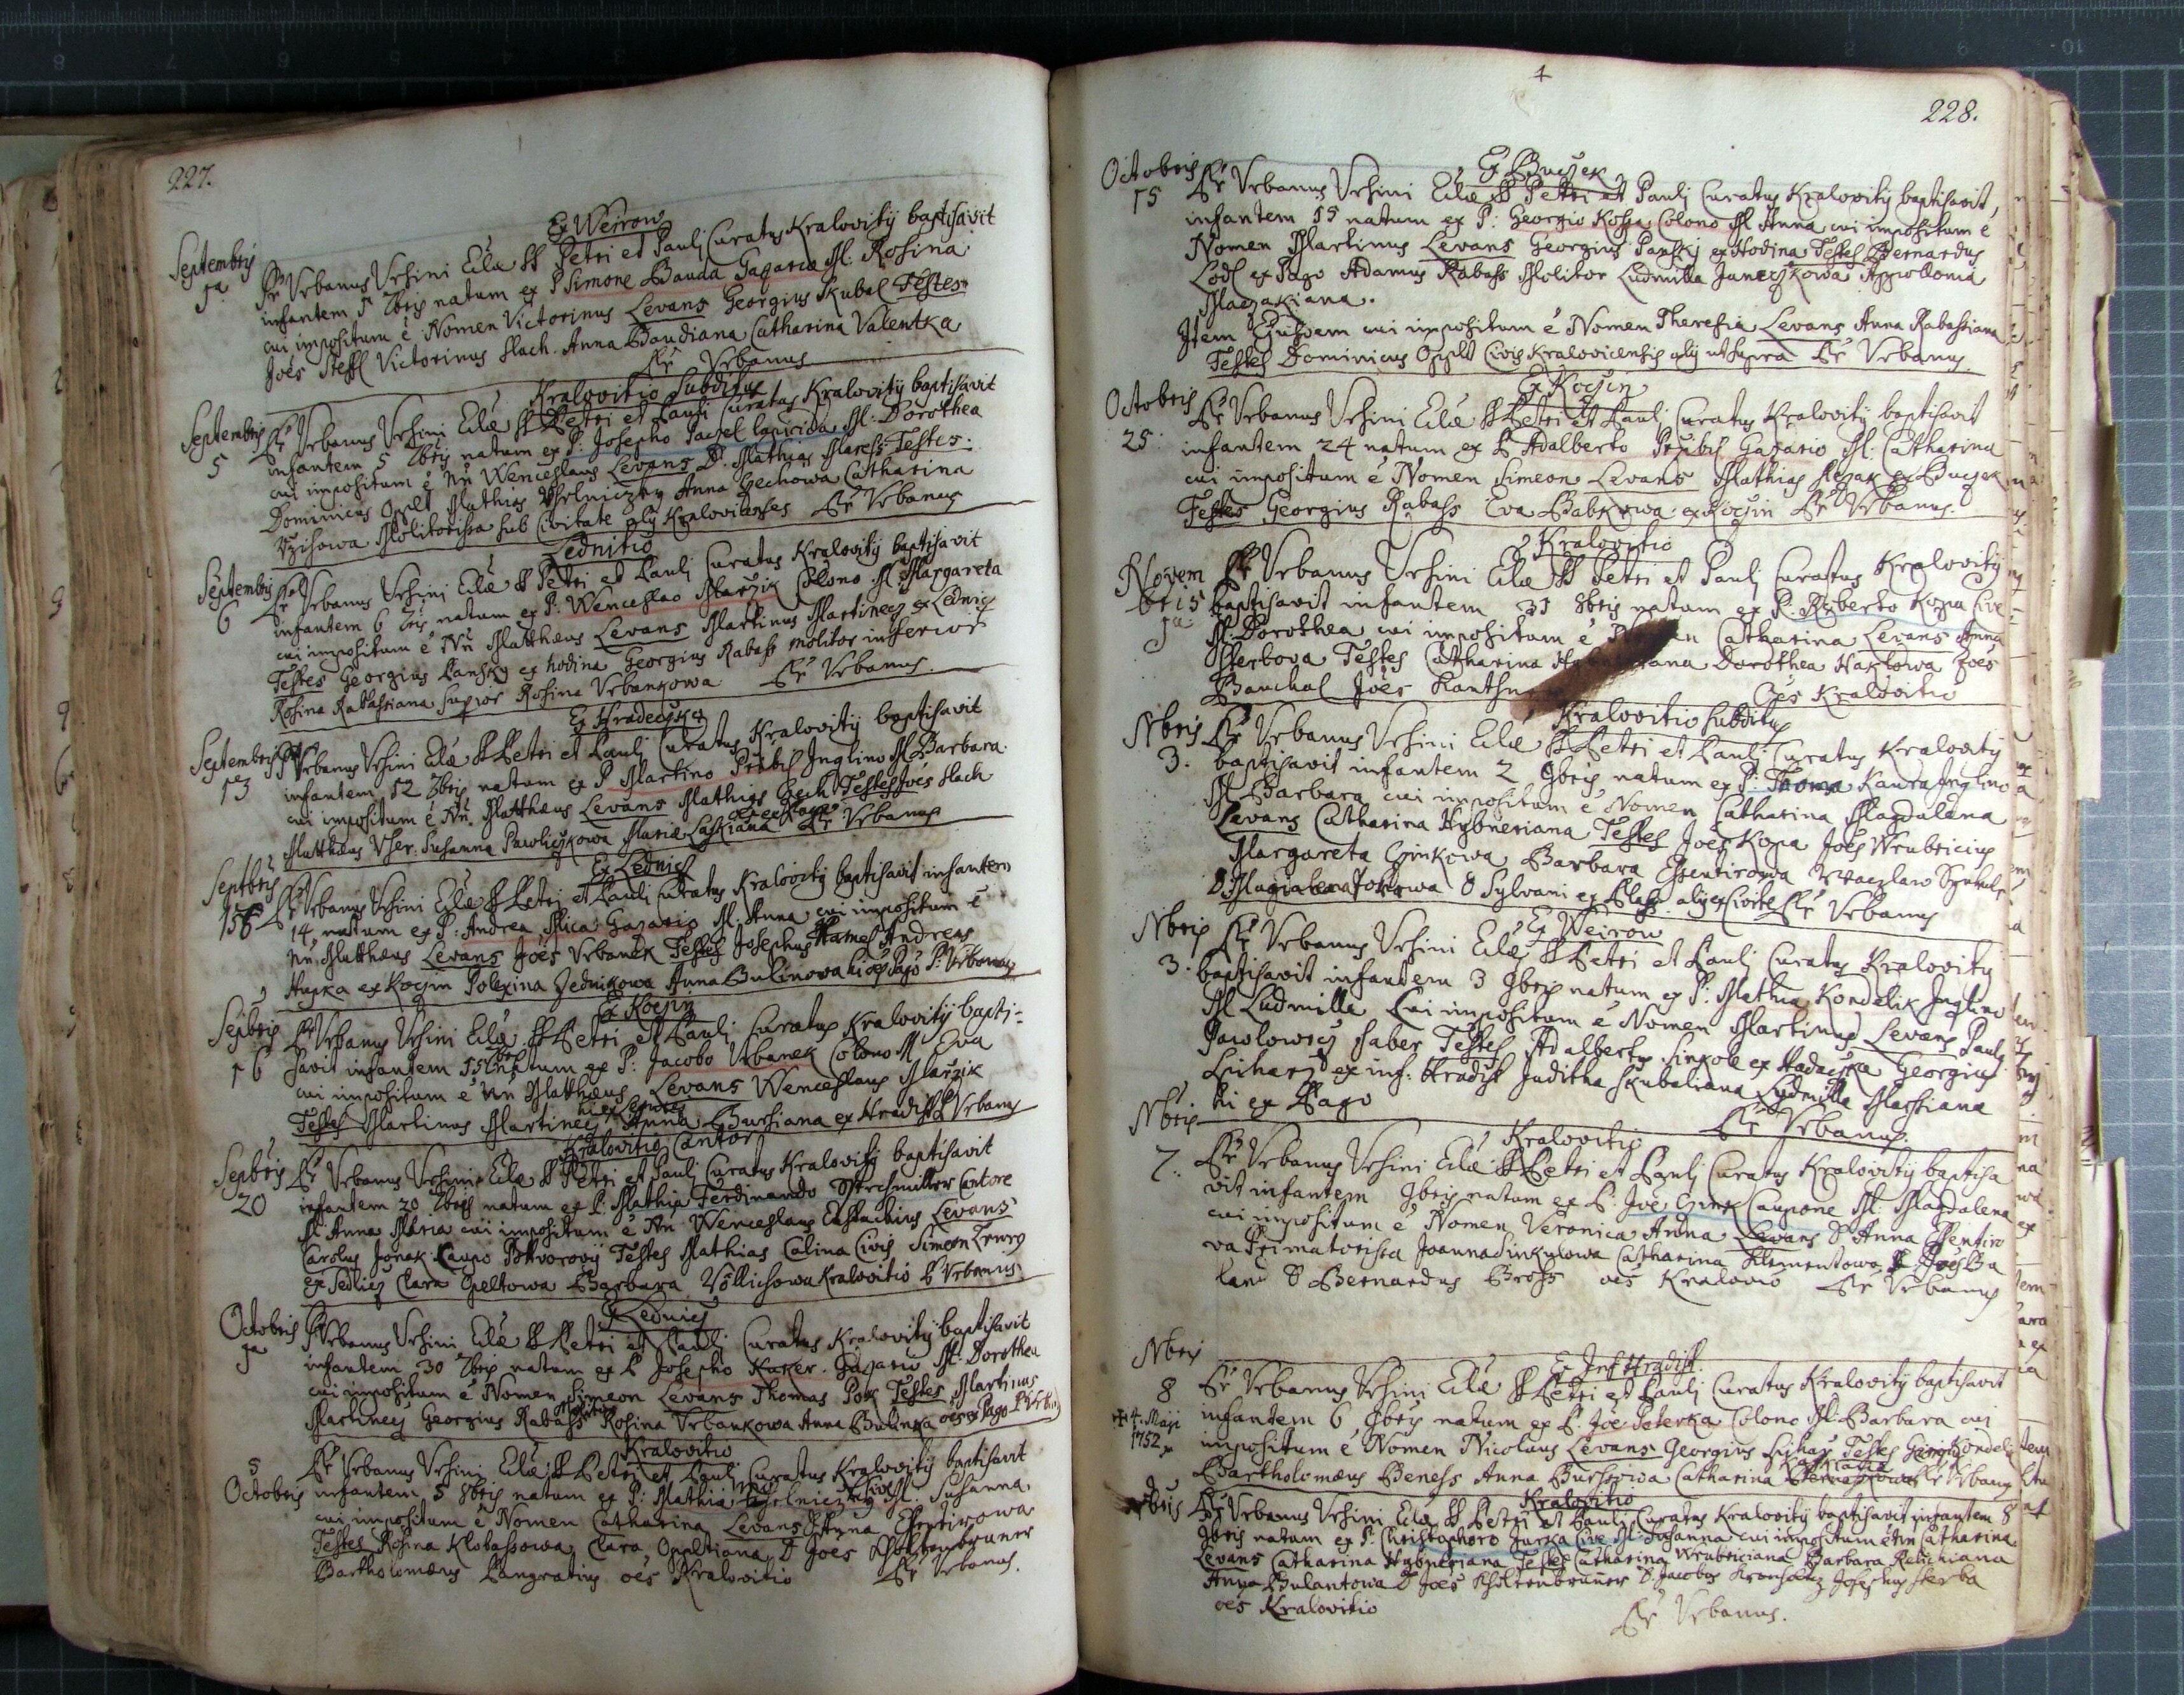 227.
Ex Weirow
Septembris Fr Urbanus Ursini Ecclae SS Petri et Pauli Curatus Kralovitij baptisavit
5a infantem 5 7bris natum ex P Simone Bauda Gazario M: Rosina
cui impositum e Nomen Victorinus Levans Georgius Skubal Testes
Joes Steffl Victorinus Slach Anna Baudiana Catharina Valentka
Fr Urbanus
Kralovitio Subditus
Septembris Fr Urbanus Ursini Ecclae SS Petri et Pauli Curatus Kralovitij baptisavit
5 infantem 5 7bris natum ex P: Josepho Paczel lapicida M: Dorothea
cui impositum e Nn Wenceslaus Levans D. Mathias Maress Testes.
Dominicus Oppelt Mathias Anna Czechowa Catharina
Molitorissa sub Civitate alij Kralovicenses Fr Urbanus
Lednitio
Septembris Fr Urbanus Ursini Ecclae SS Petri et Pauli Curatus Kralovitij baptisavit
6 infantem 6 7bris natum ex P: Wenceslao Marzik Colono M: Margareta
cui impositum e Nn Matthaeus Levans Martinus Martinecz ex Lednicz
Testes Georgius Pansky ex hodina Georgius Rabass molitor inferior
Rosina Rabassiana Superior Rosina Urbankowa Fr Urbanus
Ex Hradeczka
Septembris Fr Urbanus Ursini Ecclae SS Petri et Pauli Curatus Kralovitij baptisavit
13 infantem 12 7bris natum ex P Martino Przibil Inqlino M Barbara
cui impositum e Nn. Matthaeus Levans Mathias Czech Testes Joes Slach
Matthaeus User. Susanna Pawliczkowa Maria Laskiana Fr Urbanus
Ex Lednicz
Septbris Fr Urbanus Ursini Ecclae SS Petri et Pauli Curatus Kralovitij baptisavit infantem
15 14 natum ex P: Andrea Slica Gazario M: Anna cui impositum e
Nn Matthaeus Levans Joes Urbanek Testes Josephus Hamel Andreas
Hupka ex Koczin Polexina Zednikowa Anna Bulinowa hi ex Pago Fr Urbanus
Ex Koczin
Sepbris Fr Urbanus Ursini Eccla SS Petri et Pauli Curatus Kralovitij bapti-
16 savit infantem 15 natum ex P: Jacobo Urbanek Colono M Eva
cui impositum e Nn Matthaeus Levans Wenceslaus Marzik
hi ex Lednicz
Testes Martinus Martinecz Anna Burssiana ex Hradist Fr Urbanus
Kralovitio Cantor
Sepbris Fr Urbanus Ursini Eccla SS Petri et Pauli Curatus Kralovitij baptisavit
20 infantem 20 7bris natum ex P: Mathia Ferdinando Cantore
M Anna Maria cui impositum e Nn Wenceslaus Eustachius Levans
Carolus Jonak Caupo Potvorovij Testes Mathias Calina Civis Simeon
ex Sedlicz Clara Opeltowa Barbara Völlichowa Kralovitio Fr Urbanus
Ex Lednicz
Octobris Fr Urbanus Ursini Eccla SS Petri et Pauli Curatus Kralovitij baptisavit
1a infantem 30 7bris natum ex P Josepho Kaxer Gazario M: Dorothea
cui impositum e Nomen Simeon Levans Thomas Pok Testes Martinus
Martinecz Georgius Rabass Molitor Rosina Urbankowa Anna Bulinka oes ex Pago Fr Urban
Kralovitio
5 Fr Urbanus Ursini Eccla SS Petri et Pauli Curatus Kralovitij baptisavit
Octobris infantem 5 8bris natum ex P: Mathia Cive M. Susanna
cui impositum e Nomen Catharina Levans D Anna Essentirowa
Testes Rosina Klobassowa Clara Oppeltiana D Joes Kholtenbruner
Bartholomaeus Pangratius oes Kralovitio Fr Urbanus.
228.
Ex Buczek
Octobris Fr Urbanus Ursini Eccla SS Petri et Pauli Curatus Kralovitij baptisavit,
15 infantem 15 natum ex P: Georgio Kossa Colono M Anna cui impositum e
Nomen Martinus Levans Georgius Pansky ex Hodina Testes Bernardus
Lodl ex Pago Adamus Rabass Molitor Ludmilla Janeczkowa Appolonia
Mazakiana.
Item Eiusdem cui impositum e Nomen Theresia Levans Anna Rabassiana
Testes Dominicus Oppelt Civis Kralovicensis alij ut supra Fr Urbanus.
Ex Koczin
Octobris Fr Urbanus Ursini Eccla SS Petri et Pauli Curatus Kralovitij baptisavit
25 infantem 24 natum ex P Adalberto Przibil Gazario M. Catharina
cui impositum e Nomen Simeon Levans Mathias Mazak ex Buczek
Testes Georgius Rabass Eva Babkowa ex Koczin Fr Urbanus.
Kralovitio
Novem Fr Urbanus Ursini Eccla SS Petri et Pauli Curatus Kralovitij
bris baptisavit infantem 31 8bris natum ex P. Ruberto Kopa Cive
1a M: Dorothea cui impositum e Catharina Levans Anna
Sterbova Testes Catharina Dorothea Haklowa Joes
Bauchal Joes Oes Kralovitio
Kralovitio Subditus
Nbris Fr Urbanus Ursini Eccla SS Petri et Pauli Curatus Kralovitij
3. baptisavit infantem 2 9bris natum ex P: Thoma Kaura Inqlino
M Barbara cui impositum e Nomen Catharina Magdalena
Levans Catharina Hybneriana Testes Joes Kopa Joes Wrubricius
Margareta Czinkowa Barbara Essentirowa Waczlaw
D Magdalena D Sylvani ex Plass alij ex Civite Fr Urbanus
Ex Weirow
Nbris Fr Urbanus Ursini Eccla SS Petri et Pauli Curatus Kralovitij
3. baptisavit infantem 3 9bris natum ex P: Mathia Kondelik Inqlino
M Ludmilla Cui impositum e Nomen Martinus Levans Paul
Pawlowicz faber Testes Adalbertus Sinkole ex Hadaczka Georgius
Lichaj ex inf: Hradist Juditha Skubaliana Ludmilla Massiana
hi ex Pago Fr Urbanus.
Nbris Kralovitio
7. Fr Urbanus Ursini Eccla SS Petri et Pauli Curatus Kralovitij baptisa
vit infantem 9bris natum ex P. Joe Czink Caupone M. Magdalena
cui impositum e Nomen Veronica Anna Levans D Anna Essentiro
va Primatorissa Joanna Sinkulowa Catharina Klementowa D Joes Ba
lan D Bernardus Bross oes Kralovio Fr Urbanus
Nbris Ex Inf Hradist.
8 Fr Urbanus Ursini Eccla SS Petri et Pauli Curatus Kralovitij baptisavit
4. Maji infantem 6 9bris natum ex P. Joe Peterka Colono M: Barbara cui
1752 impositum e Nomen Nicolaus Levans Georgius Lichaj Testes Kondeli
Bartholomaeus Beness Anna Burssowa Catharina Fr Urbanus
Kralovitio
bris Fr Urbanus Ursini Eccla SS Petri et Pauli Curatus Kralovitij baptisavit infantem 8
9bris natum ex P. Christophoro Jurka Cive M. Susanna cui impositum e Nn Catharina
Levans Catharina Hybneriana Testes Catharina Wrubriciana Barbara Relichiana
Anna Bulantowa D Joes Kholtenbruner D. Jacobus Josephus Sterba
oes Kralovitio Fr Urbanus.